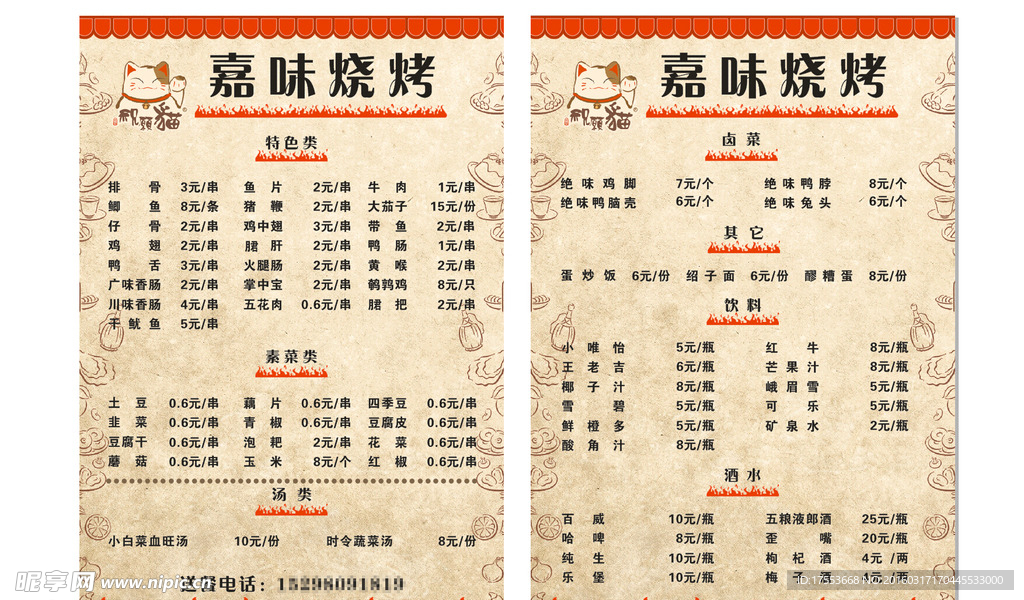 嘉味烧烤
祝頭貓
特色类
排骨 3元/串 鱼片 2元/串 牛肉 1元/串
鲫鱼 8元/条 猪鞭 2元/串 大茄子 15元/份
仔骨 2元/串 鸡中翅 3元/串 带鱼 2元/串
鸡翅 2元/串 腒肝 2元/串 鸭肠 1元/串
鸭舌 3元/串 火腿肠 2元/串 黄喉 2元/串
广味香肠 2元/串 掌中宝 2元/串 鹌鹑鸡 8元/只
川味香肠 4元/串 五花肉 0.6元/串 腒把 2元/串
干鱿鱼 5元/串
素菜类
土豆 0.6元/串 藕片 0.6元/串 四季豆 0.6元/串
韭菜 0.6元/串 青椒 0.6元/串 豆腐皮 0.6元/串
豆腐干 0.6元/串 泡粑 2元/串 花菜 0.6元/串
蘑菇 0.6元/串 玉米 8元/个 红椒 0.6元/串
汤类
小白菜血旺汤 10元/份 时令蔬菜汤 8元/份
送餐电话：
嘉味烧烤
祝頭貓
卤菜
绝味鸡脚 7元/个 绝味鸭脖 8元/个
绝味鸭脑壳 6元/个 绝味兔头 6元/个
其它
蛋炒饭 6元/份 绍子面 6元/份 醪糟蛋 8元/份
饮料
小唯怡 5元/瓶 红牛 8元/瓶
王老吉 6元/瓶 芒果汁 8元/瓶
椰子汁 8元/瓶 峨眉雪 5元/瓶
雪碧 5元/瓶 可乐 5元/瓶
鲜橙多 5元/瓶 矿泉水 2元/瓶
酸角汁 8元/瓶
酒水
百威 10元/瓶 五粮液郎酒 25元/瓶
哈啤 8元/瓶 歪嘴 20元/瓶
纯生 10元/瓶 枸杞酒 4元/两
乐堡 10元/瓶 梅子酒
昵享网 www.nipic.cn
ID:17353668 NO:20160317170445533000